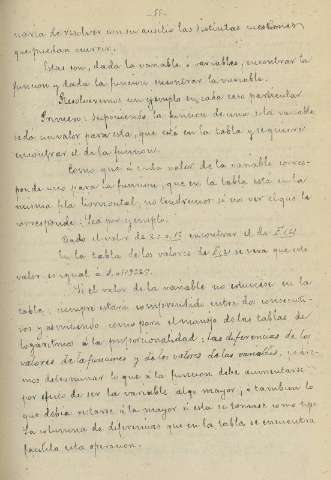 -55-
naria de resolver con su auxilio las distintas cuestiones
que puedan ocurrir.
Estas son, dada la variable ó variables, encontrar la
función y dada la función encontrar la variable.
Resolveremos un ejemplo en cada caso particular
Primero. Suponiendo la función de una sola variable
se da un valor para esta, que está en la tabla y se quiere
encontrar el de la función.
Como que á cada valor de la variable corres-
ponde uno para la función, que en la tabla está en la
misma fila horizontal, no tendremos si no ver el que le
corresponde. Sea por ejemplo.
Dado el valor de encontrar el de
En la tabla de los valores de se verá que este
valor es igual á
Si el valor de la variable no estuviese en la
tabla, siempre estará comprendido entre dos consecuti-
vos y asintiendo como para el manejo de las tablas de
logaritmos á la proporcionalidad, las diferencias de los
valores de las funciones y de los valores de las variables, podre-
mos determinar lo que á la función debe aumentarse
por efecto de ser la variable algo mayor, ó tambien lo
que debía restarse á la mayor si esta se tomase como tipo.
La columna de diferencias que en la tabla se encuentra
facilita esta operación.